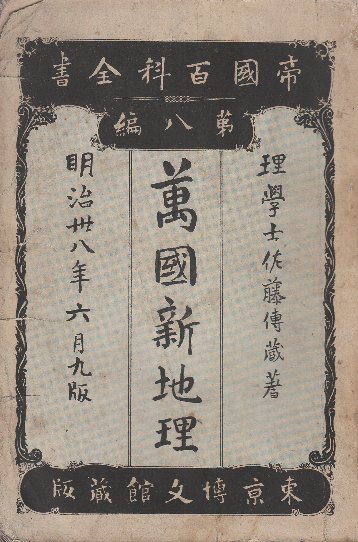 帝國百科全書
第八編
理學士佐藤傳藏著
萬國新地理
明治卅八年六月九版
東京博文館藏版